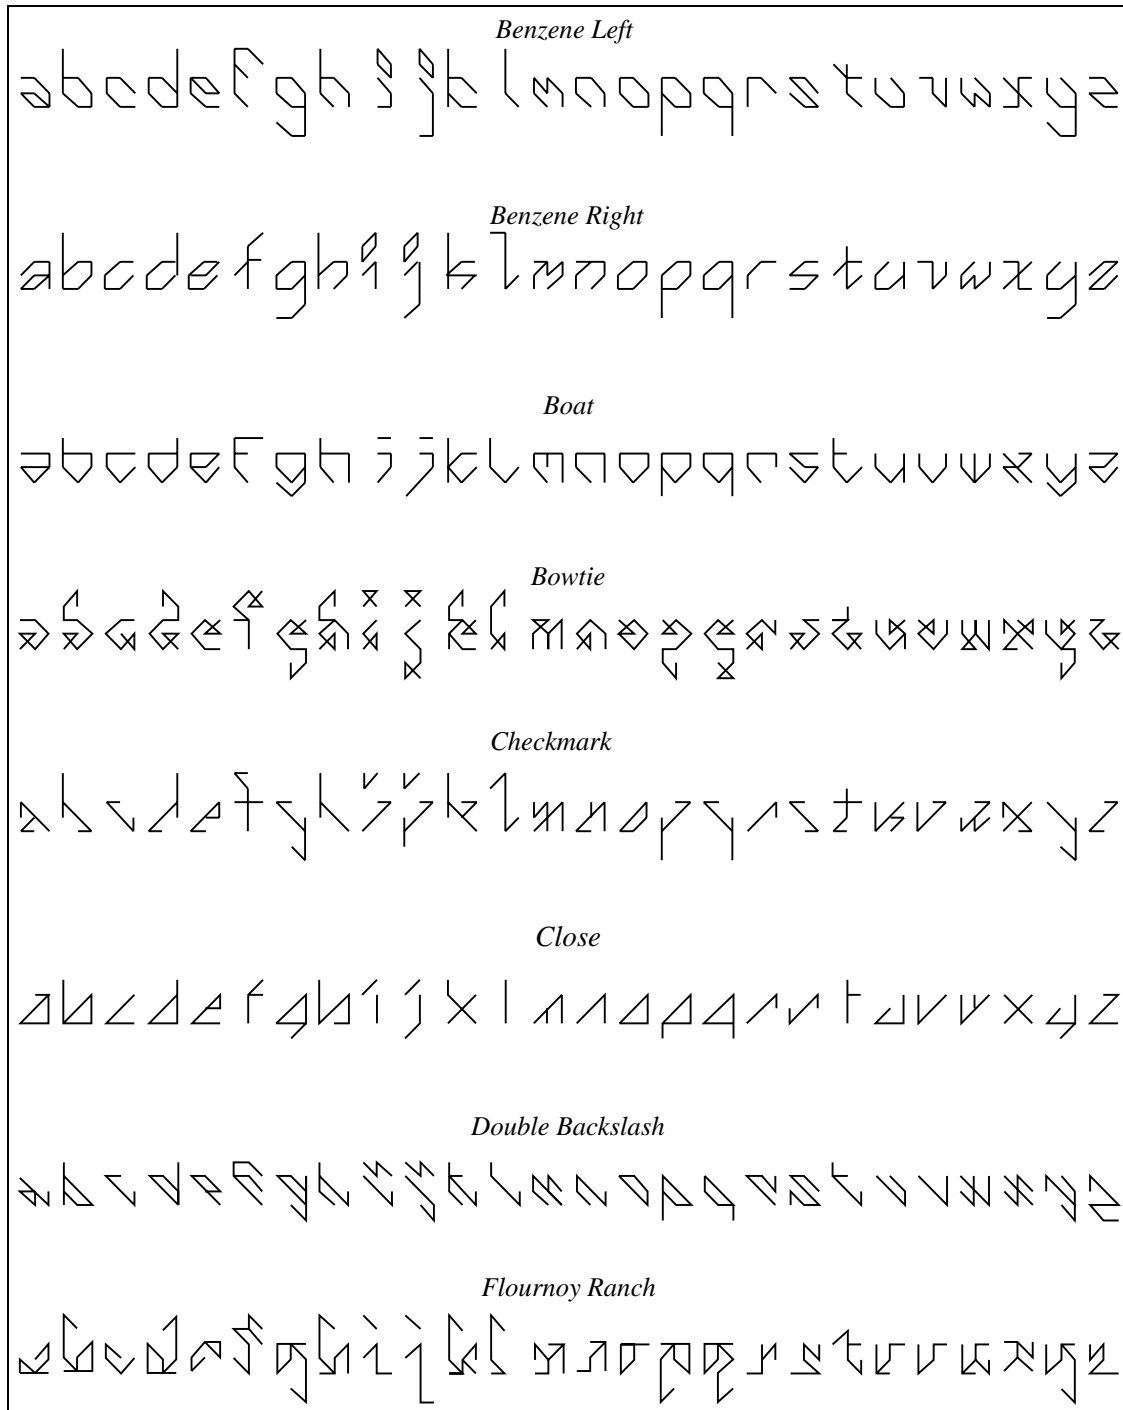 Benzene Left
abcdefghijklmnopqrstuvwxyz
Benzene Right
abcdefghijklmnopqrstuvwxyz
Boat
abcdefghijklmnopqrstuvwxyz
Bowtie
abcdefghijklmnopqrstuvwxyz
Checkmark
abcdefghijklmnopqrstuvwxyz
Close
abcdefghijklmnopqrstuvwxyz
Double Backslash
abcdefghijklmnopqrstuvwxyz
Flournoy Ranch
abcdefghijklmnopqrstuvwxyz